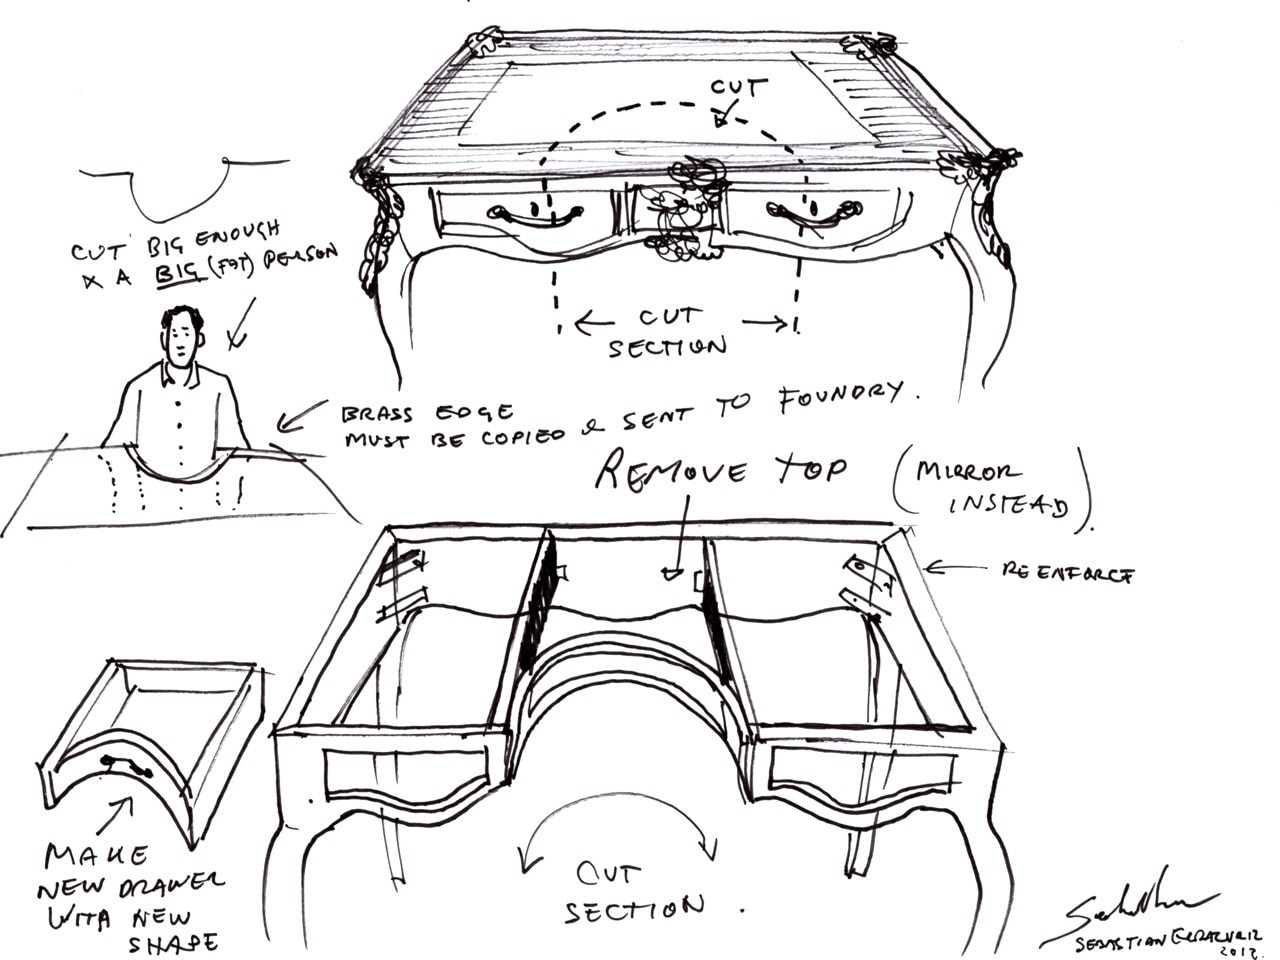 CUT
CUT BIG ENOUGH
X A BIG (FAT) PERSON
CUT
SECTION
BRASS EDGE
MUST BE COPIED & SENT TO FOUNDRY.
REMOVE TOP (MIRROR
INSTEAD).
REENFORCE
MAKE
NEW DRAWER
WITH NEW
SHAPE
CUT
SECTION.
SEBASTIAN ERRAZURIZ
2012.